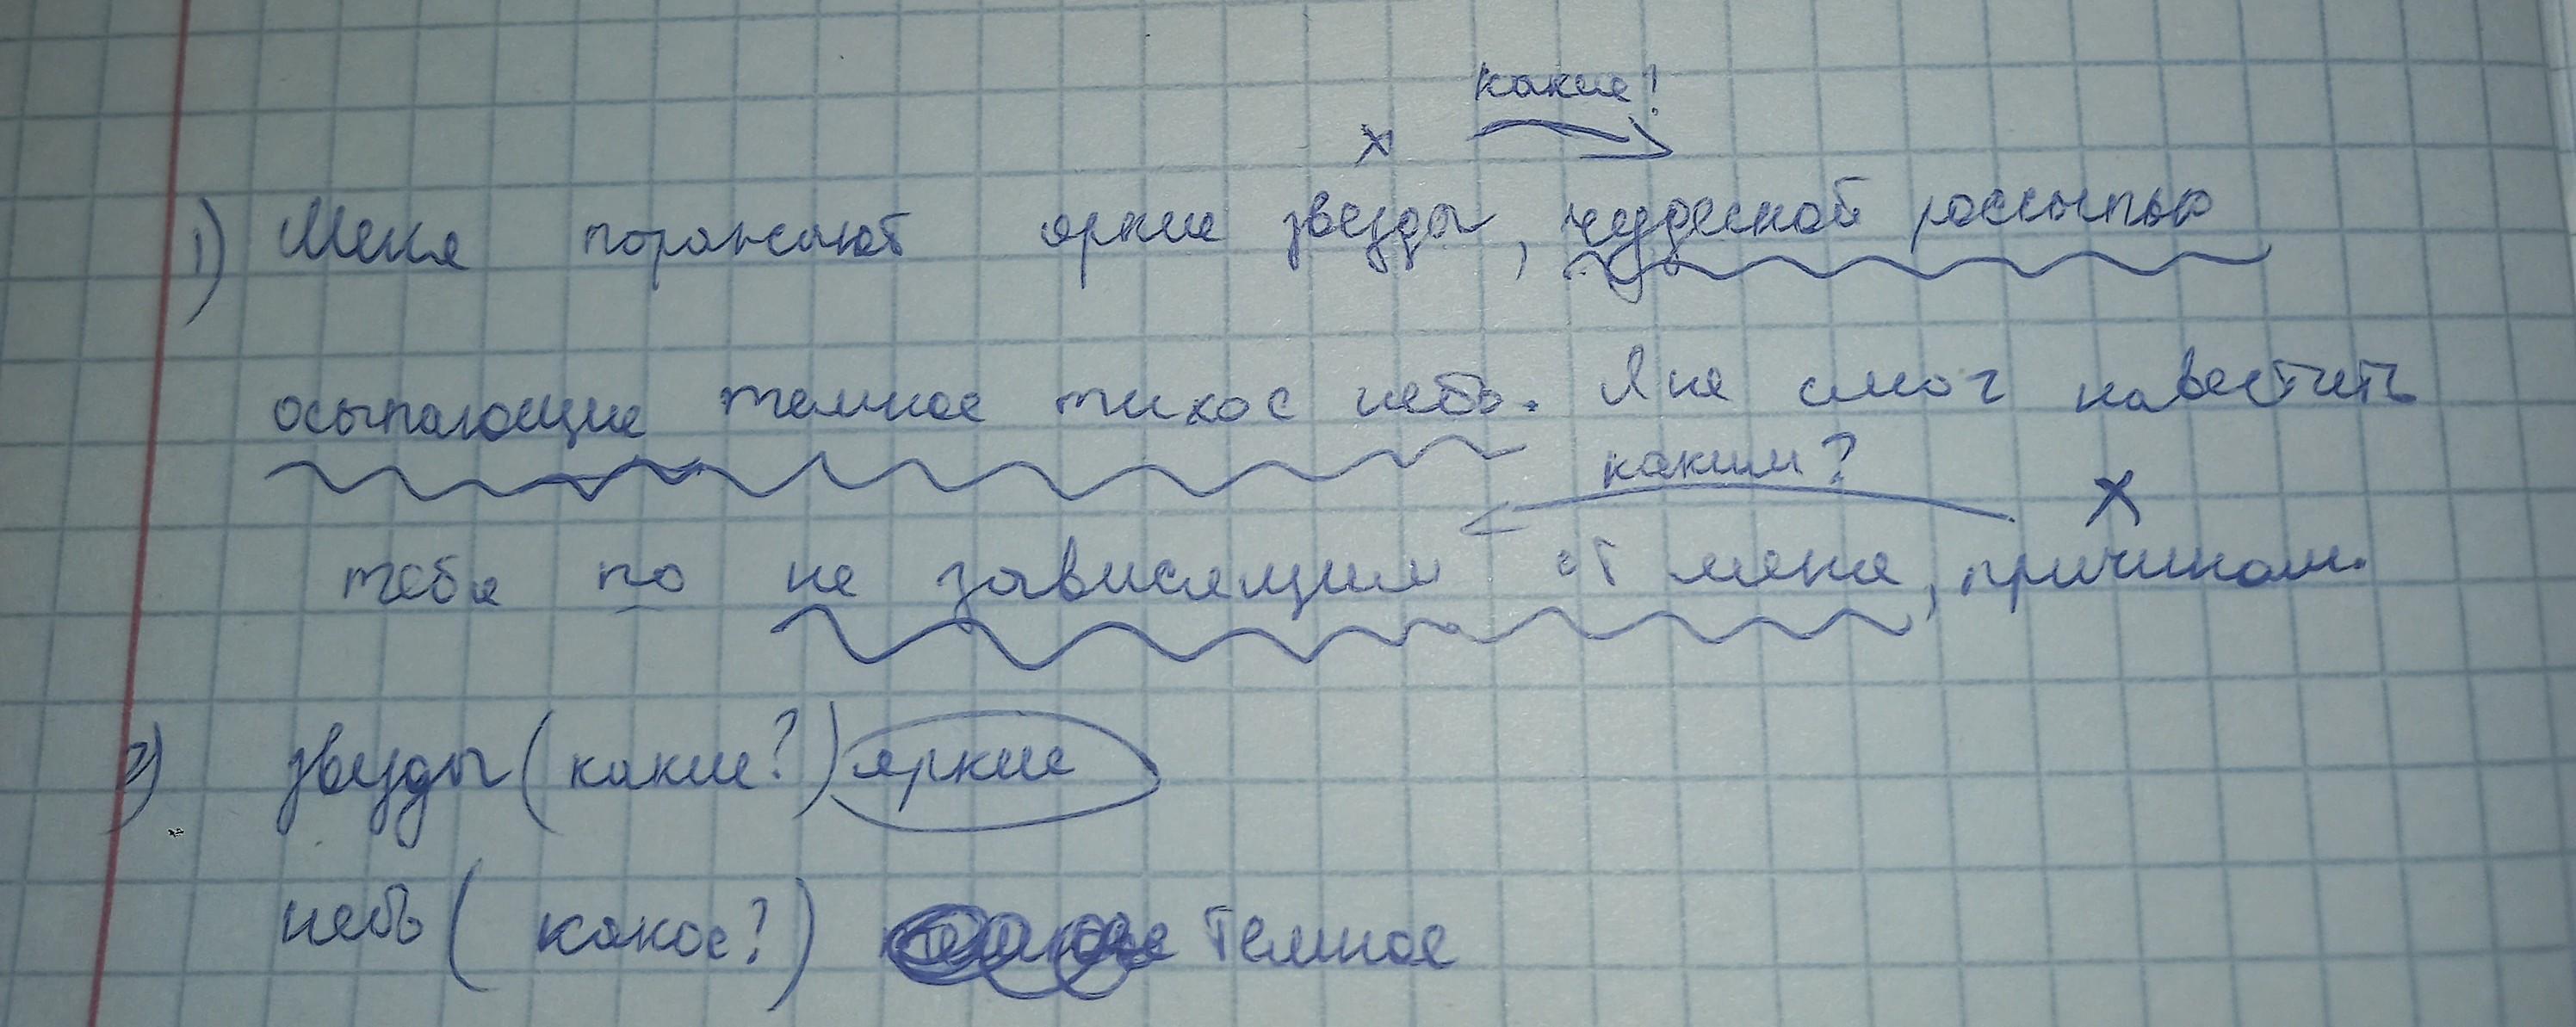 какие?
х
1) Меня поражают яркие звезды, чудесной россыпью
осыпающие темное тихое небо. Я не смог навестить
каким?
х
тебя по не зависящим от меня, причинам.
2) звезды (какие?) яркие
небо (какое?) темное